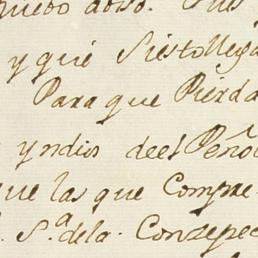 y que si esto llega
Para que Pierda
yndios deel Peño
que las que Compre
S.ª dela Conzepc